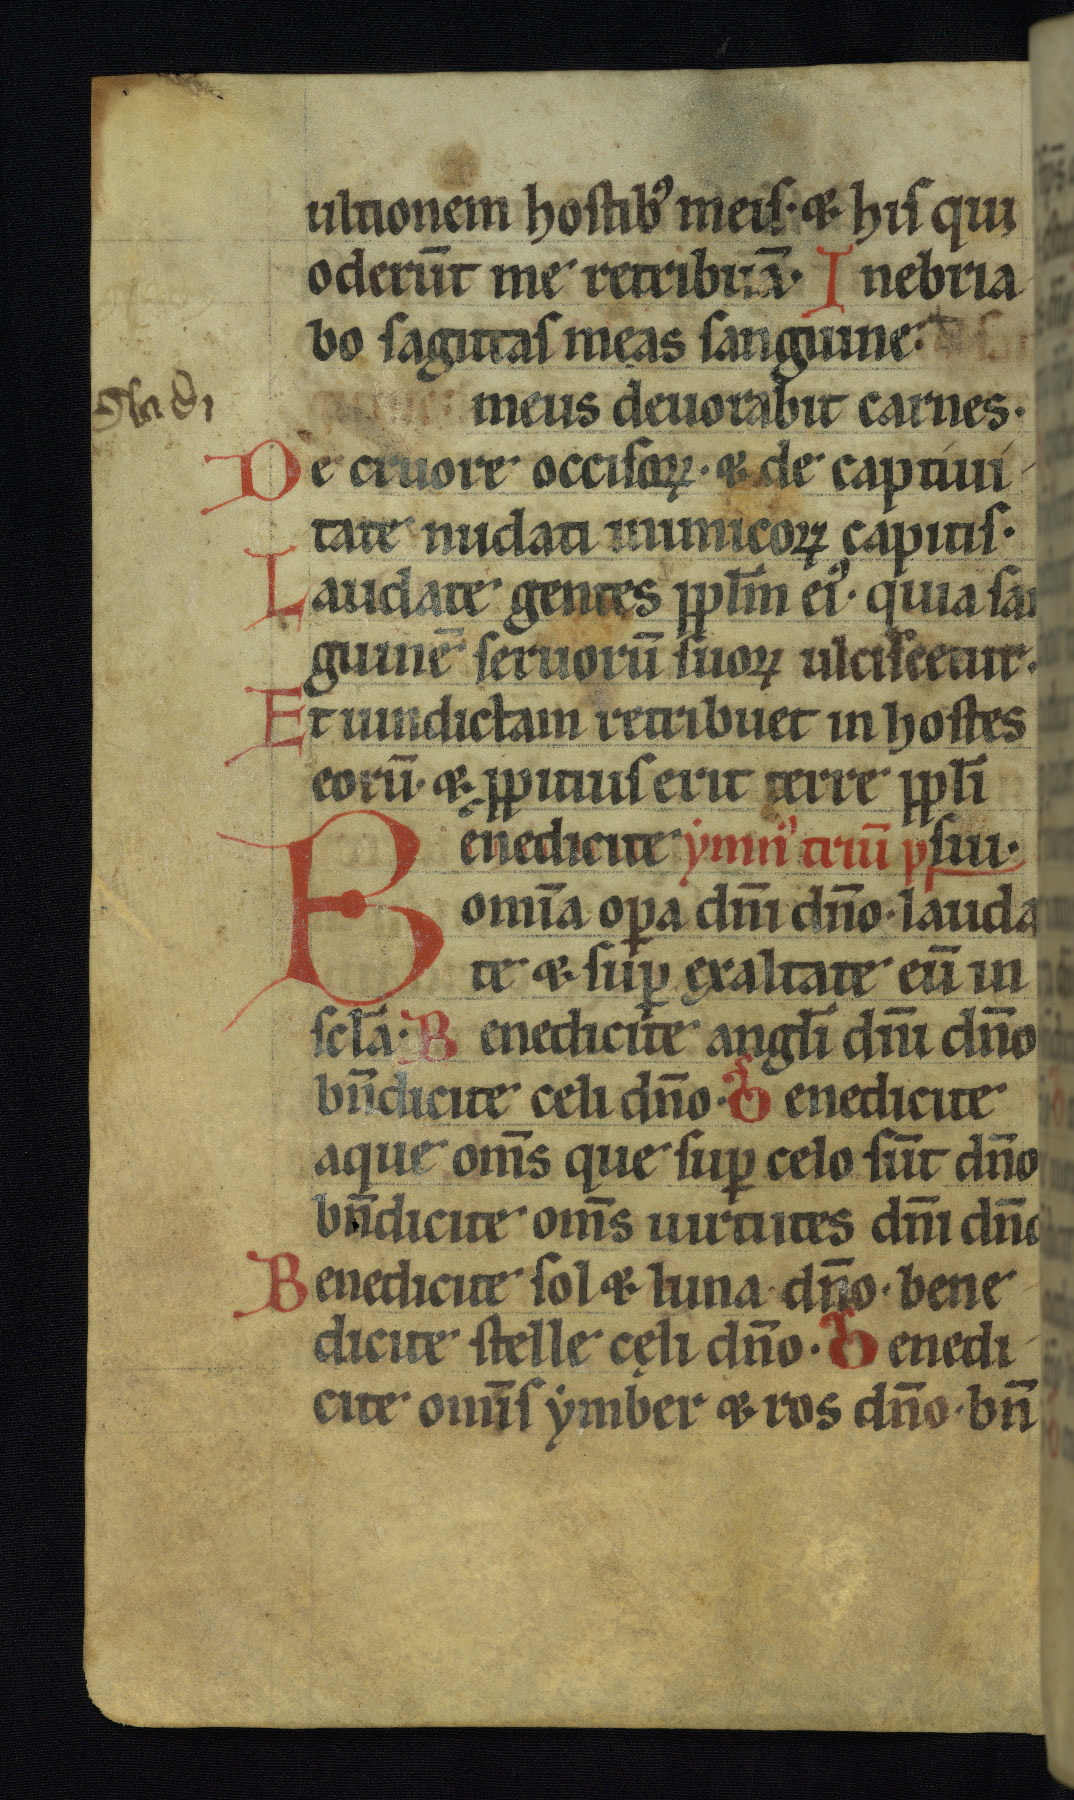 ultionem hostib᷒ meis· & his qui
oderūt me retribuā· Inebria
bo sagittas meas sanguine·
Gladi
meus deuorabit carnes·
De cruore occisoꝝ· & de captiui
tate nudati inimicoꝝ capitis·
Laudate gentes ppl̄m ei᷒· quia san
guinē seruorū suoꝝ ulciscetur·
Et uindictam retribuet in hostes
eorū· & ꝓpitius erit terre ppl̄i
Benedicite ẏmn᷒ triū p sui·
om̄ia oꝑa dn̄i dn̄o· lauda
te & suꝑ exaltate eū in
scl̄a· Benedicite angl̄i dn̄i dn̄o
bn̄dicite celi dn̄o· Benedicite
aque om̄s que suꝑ celo sūt dn̄o
bn̄dicite om̄s uirtutes dn̄i dn̄o
Benedicite sol & luna dn̄o· bene
dicite stelle cęli dn̄o· Benedi
cite omīs ẏmber & ros dn̄o· bn̄